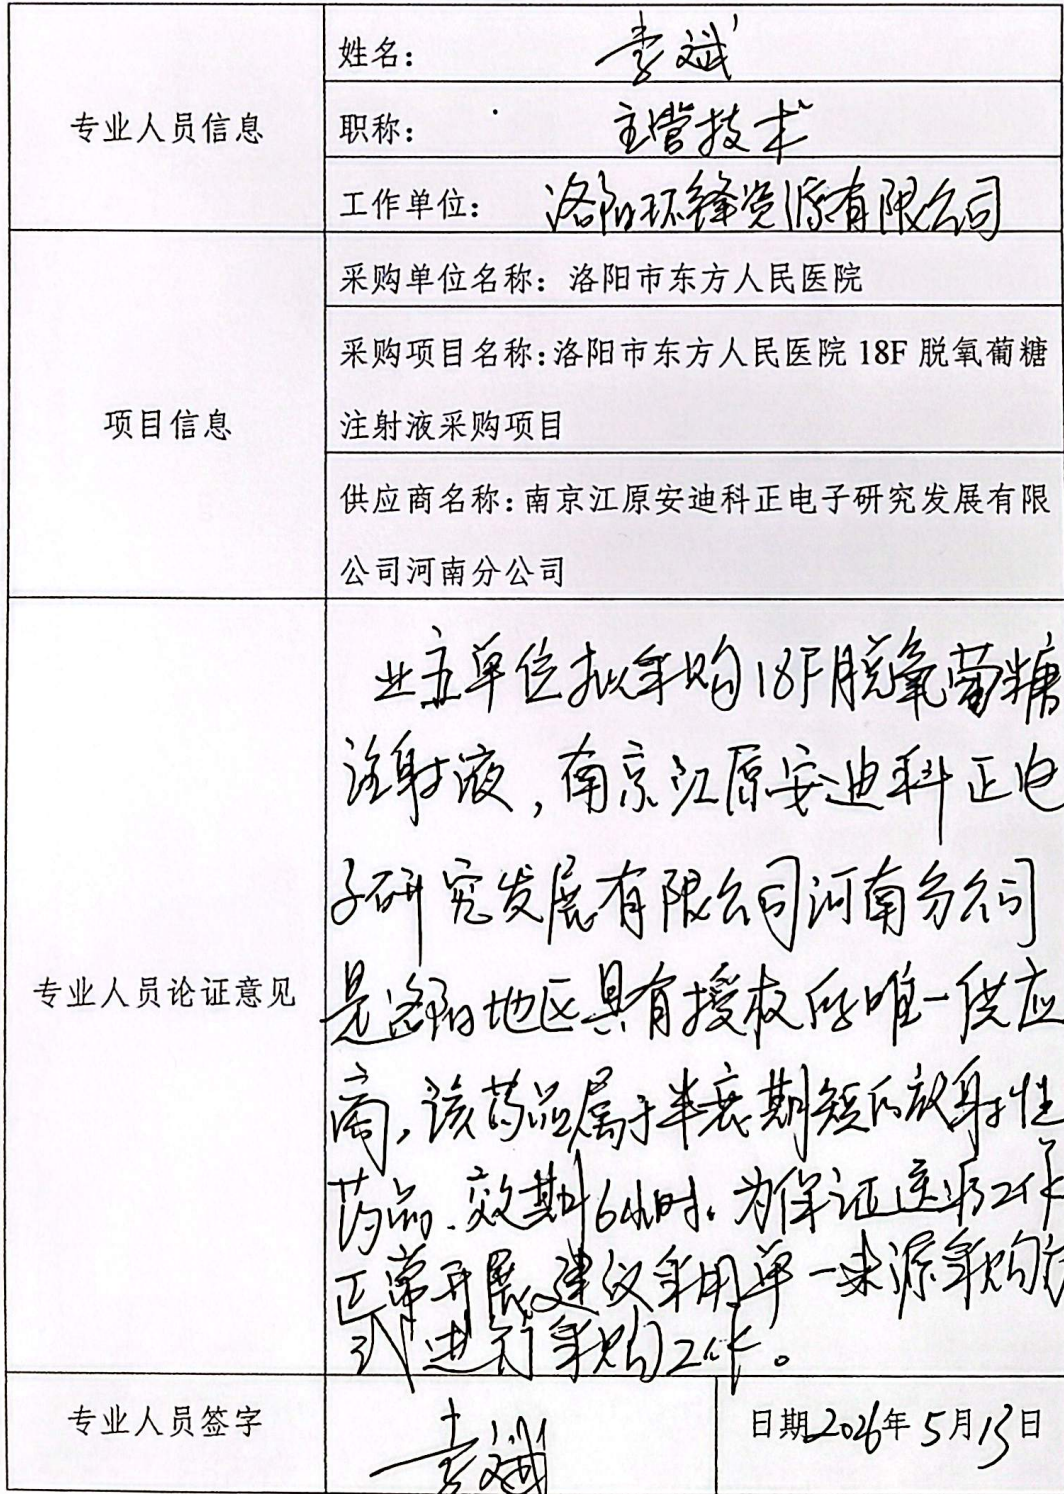 专业人员信息
姓名：李斌
职称：主管技术
工作单位：洛阳环锋资源有限公司
项目信息
采购单位名称：洛阳市东方人民医院
采购项目名称：洛阳市东方人民医院 18F 脱氧葡糖
注射液采购项目
供应商名称：南京江原安迪科正电子研究发展有限
公司河南分公司
专业人员论证意见
业主单位拟采购18F脱氧葡糖
注射液，南京江原安迪科正电
子研究发展有限公司河南分公司
是洛阳地区具有授权的唯一供应
商，该药品属于半衰期短的放射性
药品、效期6小时。为保证医疗工作
正常开展，建议采用单一来源采购方
式进行采购工作。
专业人员签字
李斌
日期2026年5月13日